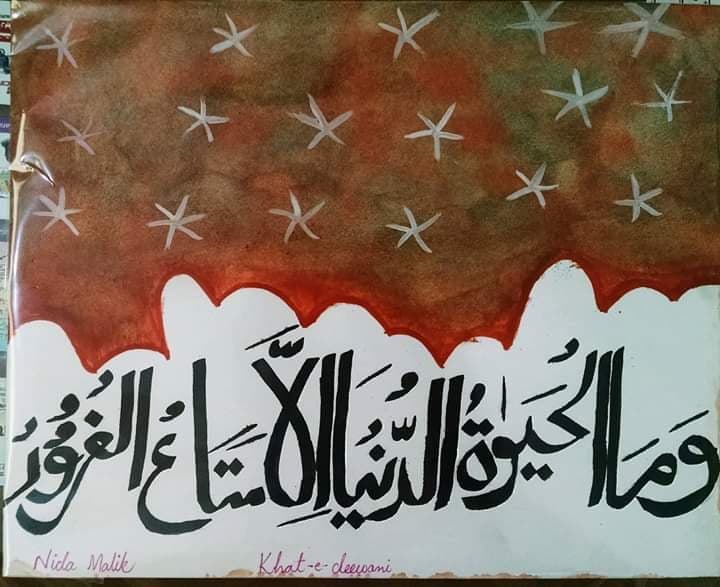 وَمَا الْحَيَوٰةُ الدُّنْيَا إِلَّا مَتَاعُ الْغُرُورُ
Nida Malik Khat-e-deewani